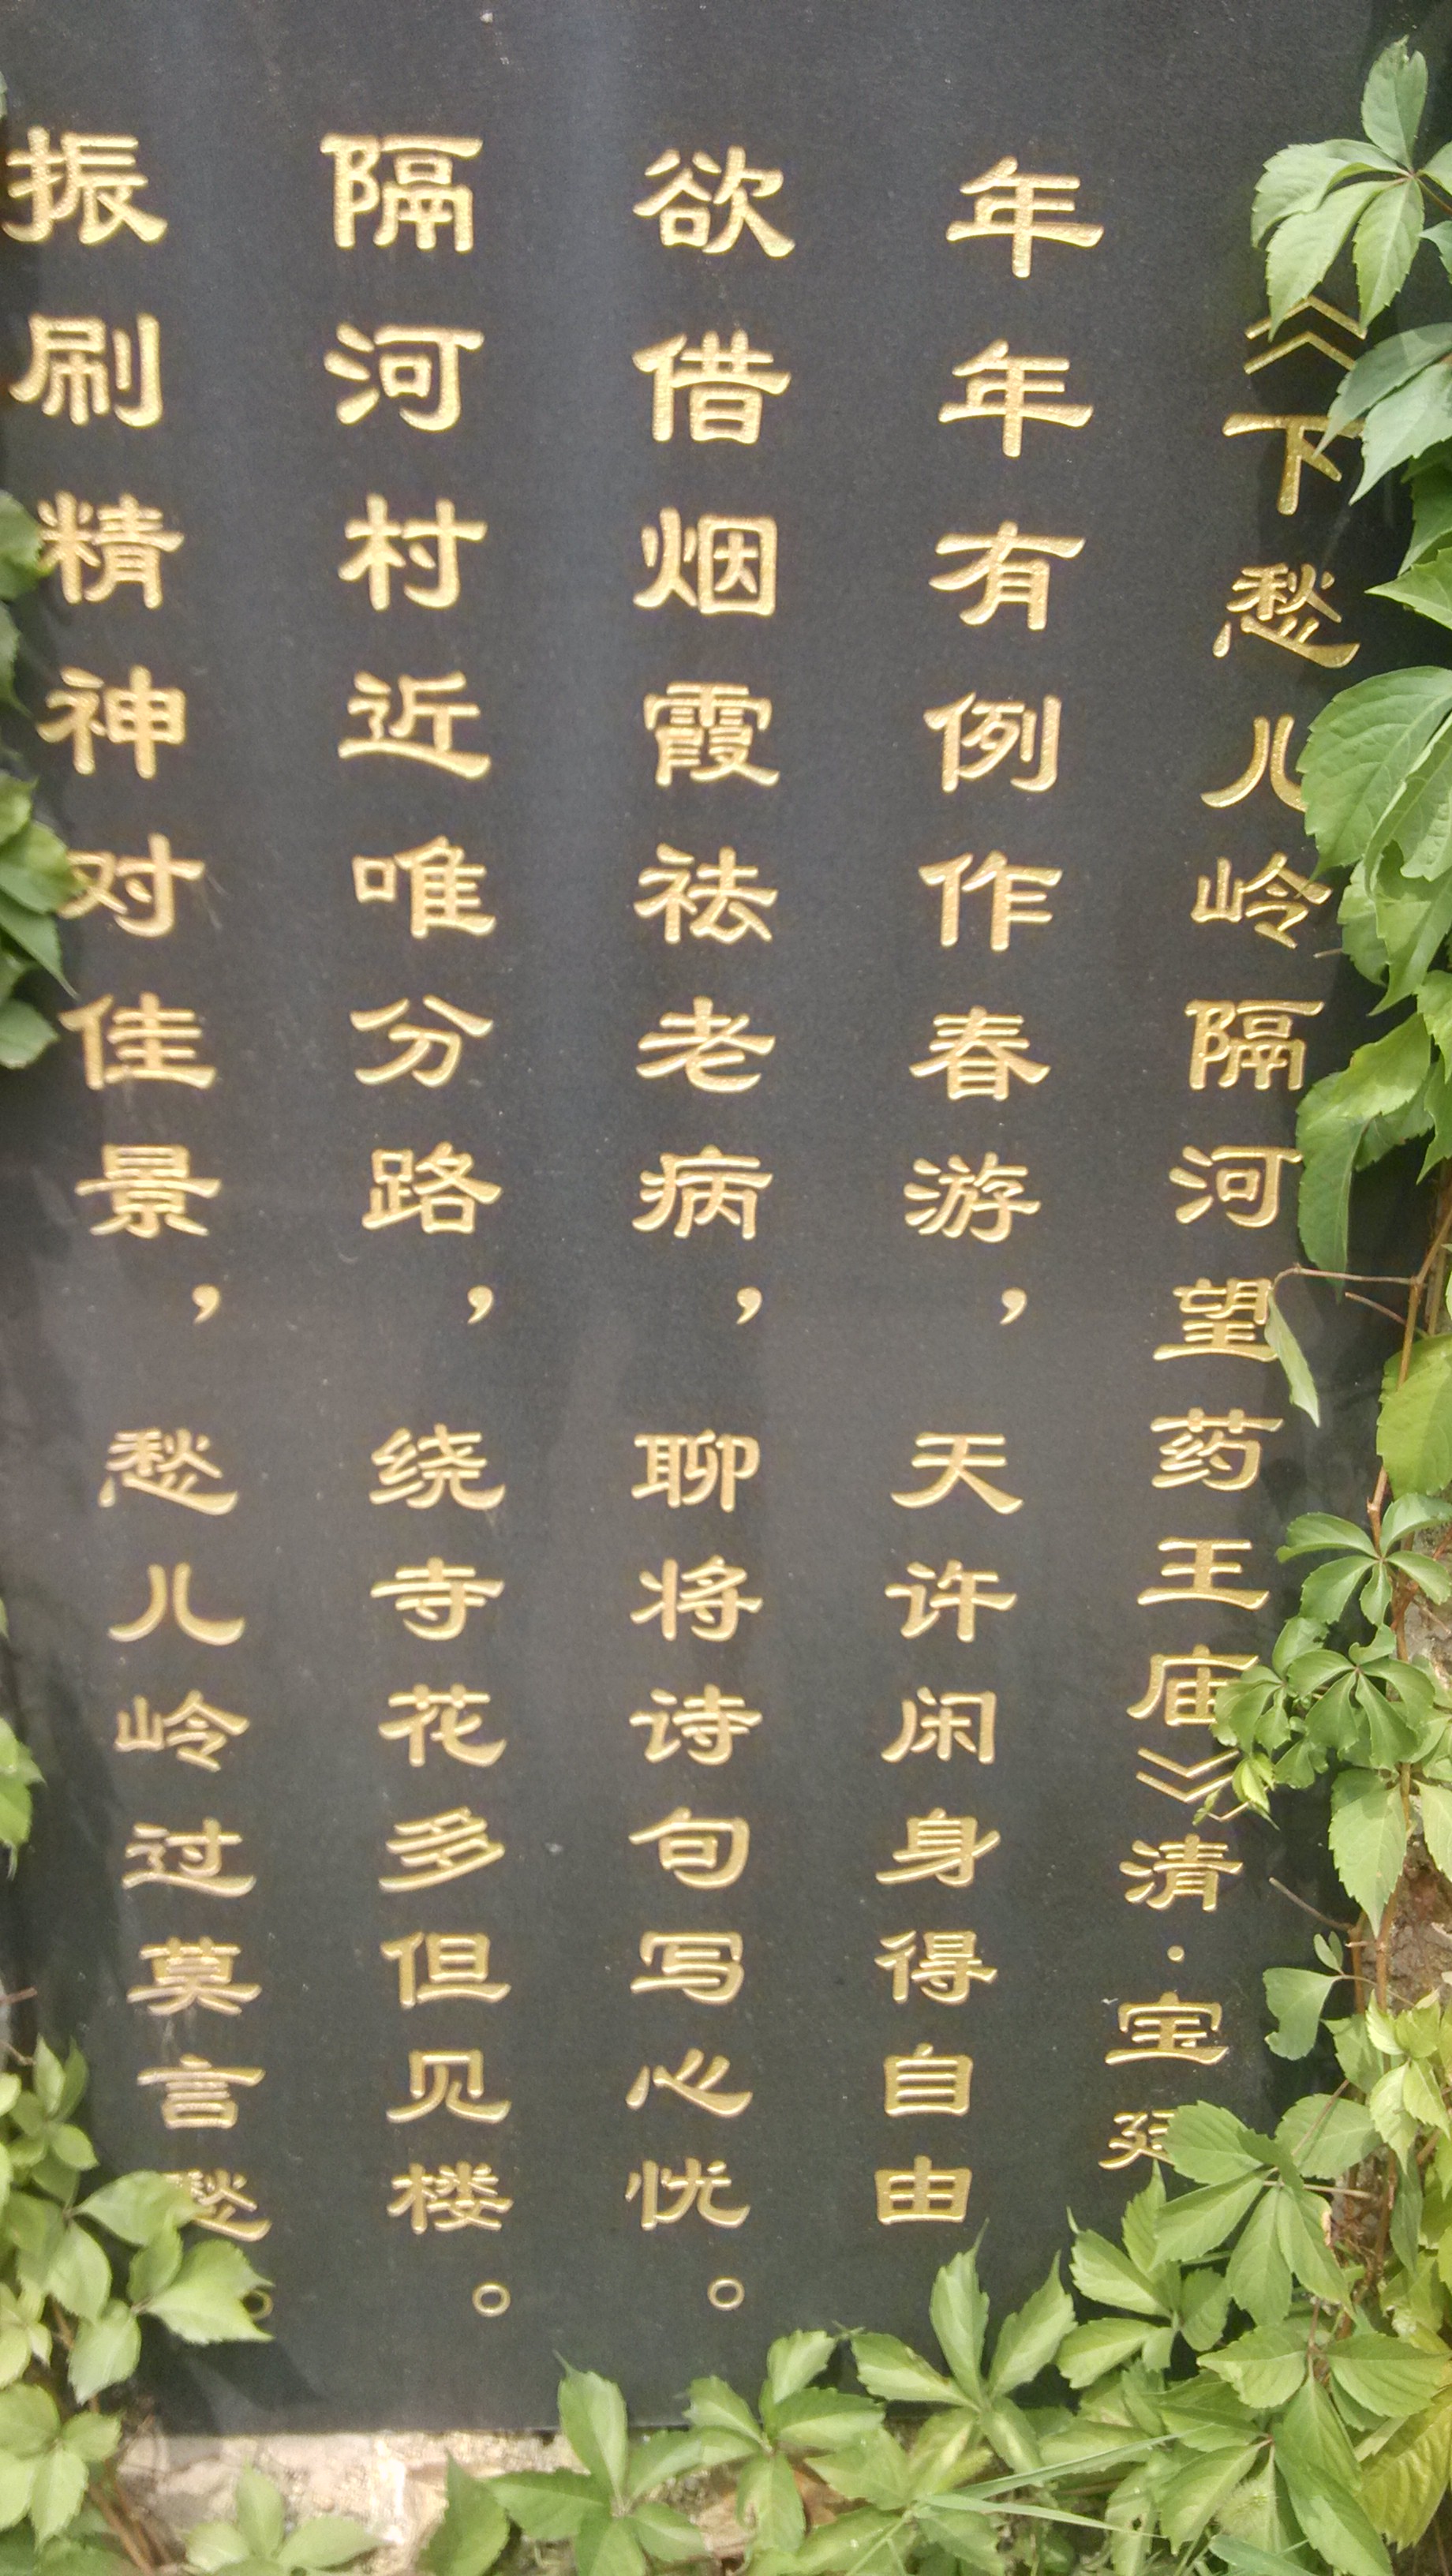 《下愁儿岭隔河望药王庙》清·宝廷
年年有例作春游，天许闲身得自由
欲借烟霞祛老病，聊将诗句写心忧。
隔河村近唯分路，绕寺花多但见楼。
振刷精神对佳景，愁儿岭过莫言愁。